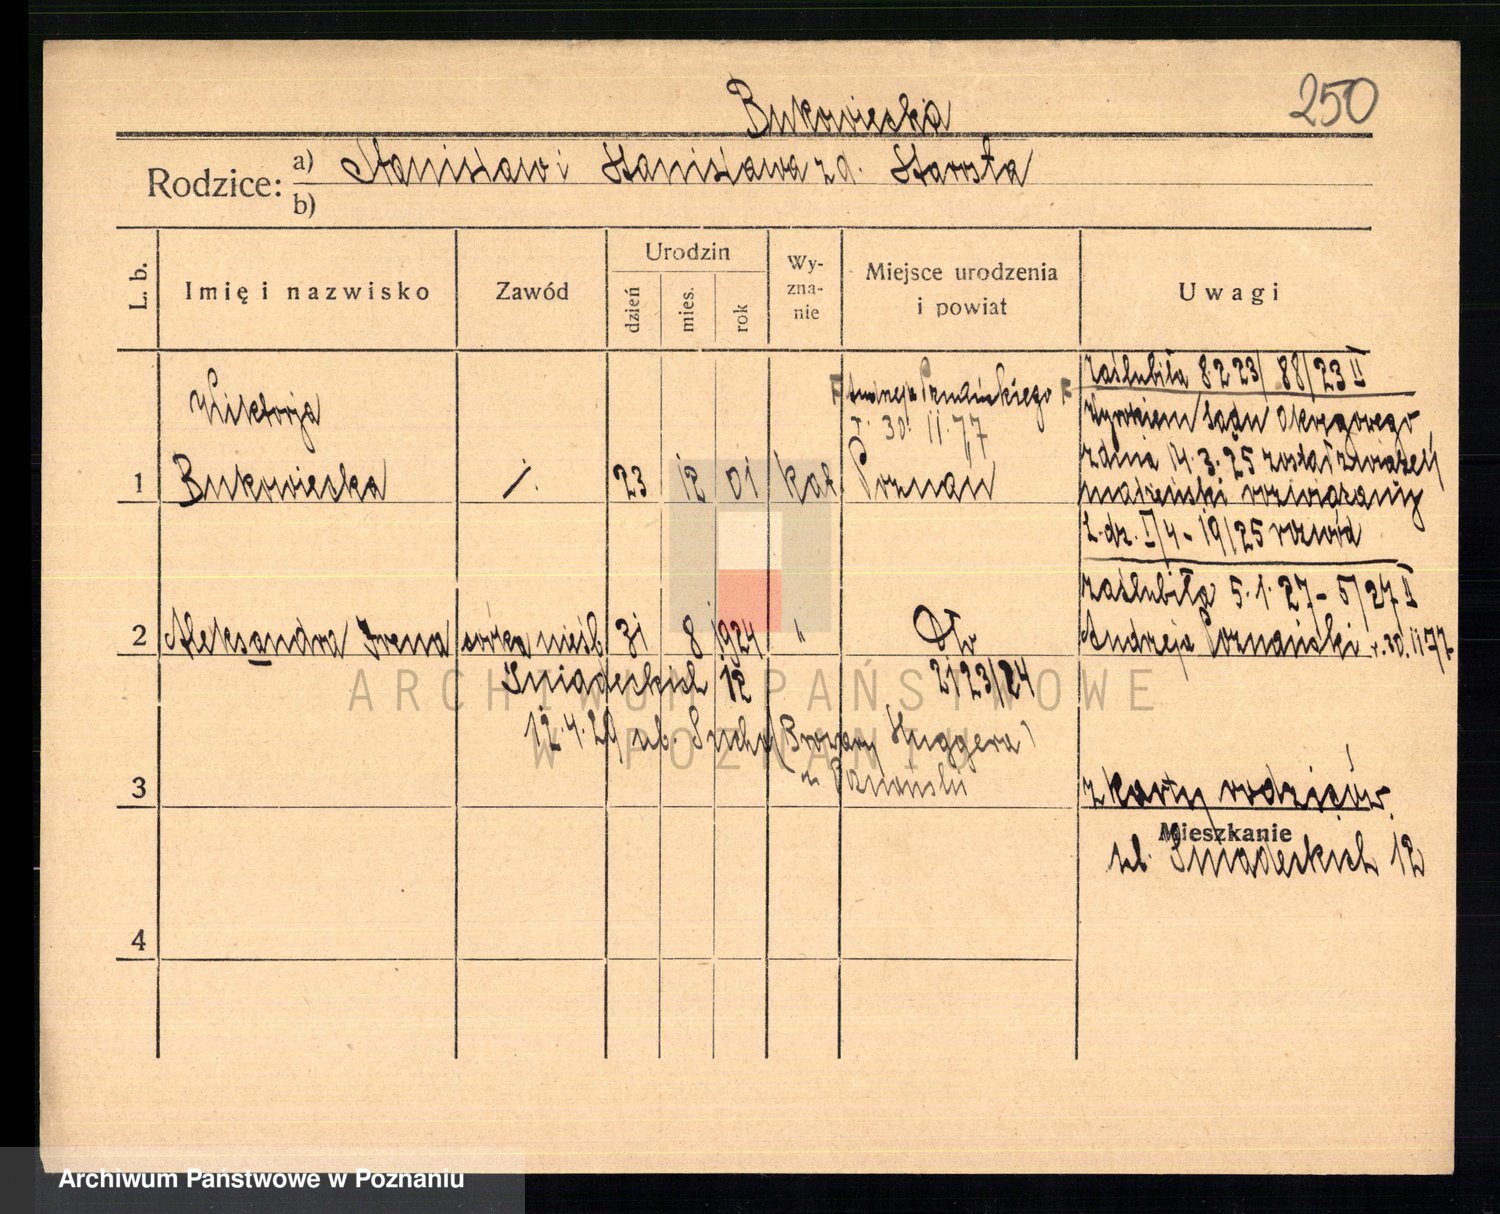 250
Bukowiecka
Rodzice: a) Stanisław i Stanisława z d. Starosta
b)
L. b.
Imię i nazwisko
Zawód
Urodzin
dzień
mies.
rok
Wy-
zna-
nie
Miejsce urodzenia
i powiat
Uwagi
1
Wiktorja
Bukowiecka
/.
23
12
01
kat
Andrzeja
r. 30. 11. 77
Poznań
zaślubiła 8.2.23/ 88/23 II
Wyrokiem Sądu Okręgowego
z dnia 14.3.25 został związek
małżeński rozwiązany
L. dz. 1/4 - 19/25 rozwód
zaślubiła 5.1.27 - 5/27 II
Andrzeja Poznański r. 30. 11 77
2
Aleksandra Irena
córka nieśl.
31
8
1924
"
2123/24
Śniadeckich 12
12.4.29 ul. (Browary Huggera)
3
z karty rodziców.
Mieszkanie
ul. Śniadeckich 12
4
ARCHIWUM PAŃSTWOWE
W POZNANIU
Archiwum Państwowe w Poznaniu